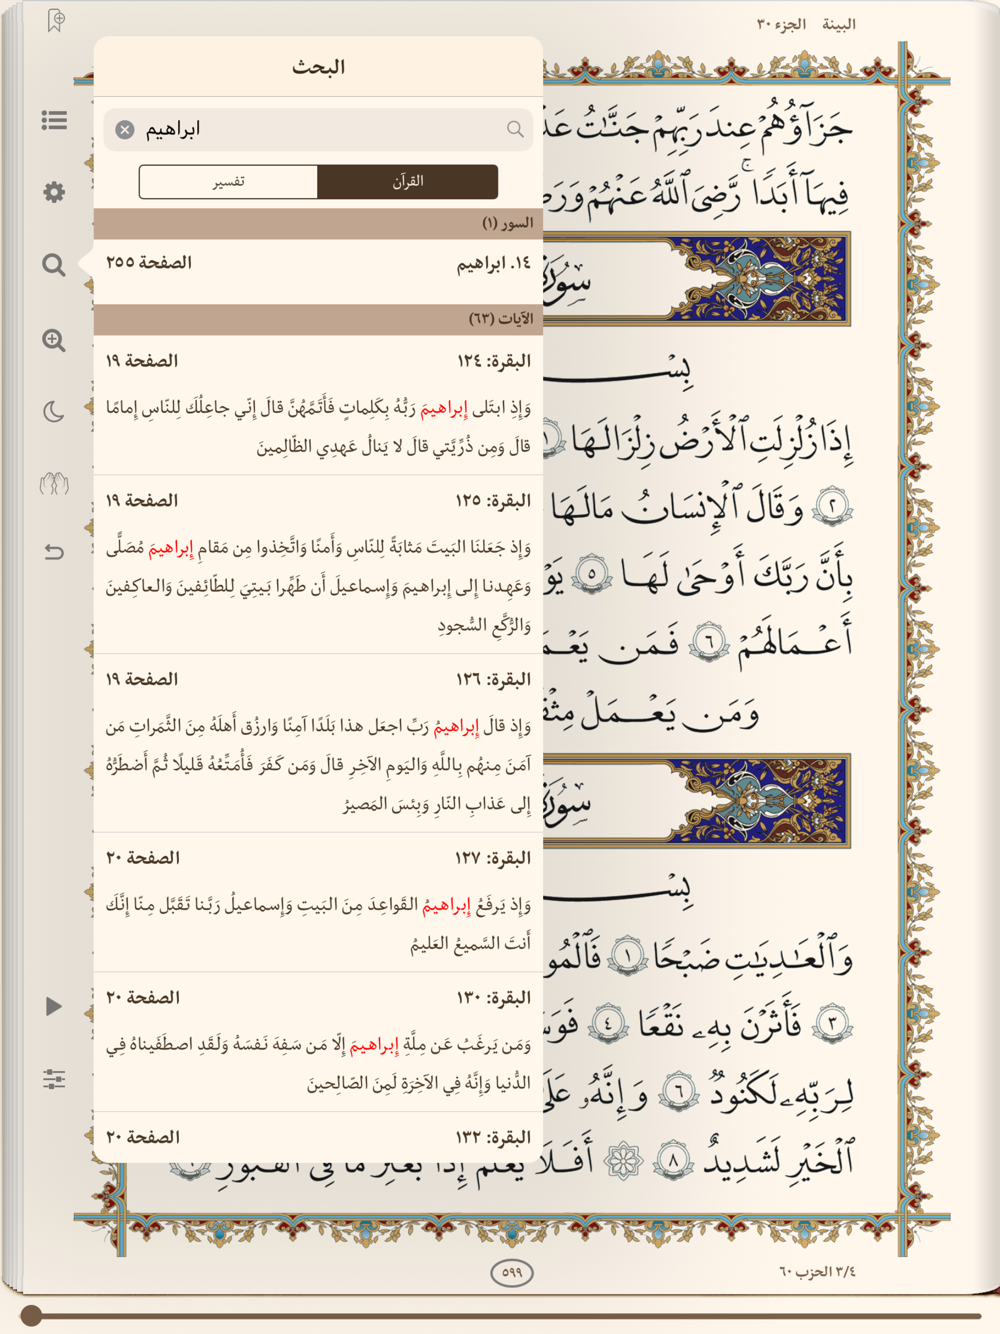 البينة الجزء ٣٠
البحث
ابراهيم
القرآن تفسير
السور (١)
١٤. ابراهيم الصفحة ٢٥٥
الآيات (٦٣)
البقرة: ١٢٤ الصفحة ١٩
وَإِذِ ابتَلى إِبراهيمَ رَبُّهُ بِكَلِماتٍ فَأَتَمَّهُنَّ قالَ إِنّي جاعِلُكَ لِلنّاسِ إِمامًا
قالَ وَمِن ذُرِّيَّتي قالَ لا يَنالُ عَهدِي الظّالِمينَ
البقرة: ١٢٥ الصفحة ١٩
وَإِذ جَعَلنَا البَيتَ مَثابَةً لِلنّاسِ وَأَمنًا وَاتَّخِذوا مِن مَقامِ إِبراهيمَ مُصَلًّى
وَعَهِدنا إِلى إِبراهيمَ وَإِسماعيلَ أَن طَهِّرا بَيتِيَ لِلطّائِفينَ وَالعاكِفينَ
وَالرُّكَّعِ السُّجودِ
البقرة: ١٢٦ الصفحة ١٩
وَإِذ قالَ إِبراهيمُ رَبِّ اجعَل هذا بَلَدًا آمِنًا وَارزُق أَهلَهُ مِنَ الثَّمَراتِ مَن
آمَنَ مِنهُم بِاللَّهِ وَاليَومِ الآخِرِ قالَ وَمَن كَفَرَ فَأُمَتِّعُهُ قَليلًا ثُمَّ أَضطَرُّهُ
إِلى عَذابِ النّارِ وَبِئسَ المَصيرُ
البقرة: ١٢٧ الصفحة ٢٠
وَإِذ يَرفَعُ إِبراهيمُ القَواعِدَ مِنَ البَيتِ وَإِسماعيلُ رَبَّنا تَقَبَّل مِنّا إِنَّكَ
أَنتَ السَّميعُ العَليمُ
البقرة: ١٣٠ الصفحة ٢٠
وَمَن يَرغَبُ عَن مِلَّةِ إِبراهيمَ إِلّا مَن سَفِهَ نَفسَهُ وَلَقَدِ اصطَفَيناهُ فِي
الدُّنيا وَإِنَّهُ فِي الآخِرَةِ لَمِنَ الصّالِحينَ
البقرة: ١٣٢ الصفحة ٢٠
جَزَآؤُهُمْ عِندَ رَبِّهِمْ جَنَّـٰتُ
فِيهَآ أَبَدًا ۖ رَّضِىَ ٱللَّهُ عَنْهُمْ
إِذَا زُلْزِلَتِ ٱلْأَرْضُ زِلْزَالَهَا ١
٢ وَقَالَ ٱلْإِنسَـٰنُ مَا لَهَا
بِأَنَّ رَبَّكَ أَوْحَىٰ لَهَا ٥
أَعْمَـٰلَهُمْ ٦ فَمَن
وَمَن يَعْمَلْ
وَٱلْعَـٰدِيَـٰتِ ضَبْحًا ١
٣ فَأَثَرْنَ بِهِۦ نَقْعًا ٤
لِرَبِّهِۦ لَكَنُودٌ ٦ وَإِنَّهُۥ
ٱلْخَيْرِ لَشَدِيدٌ ٨ ۞ أَفَلَا
٣/٤ الحزب ٦٠
٥٩٩